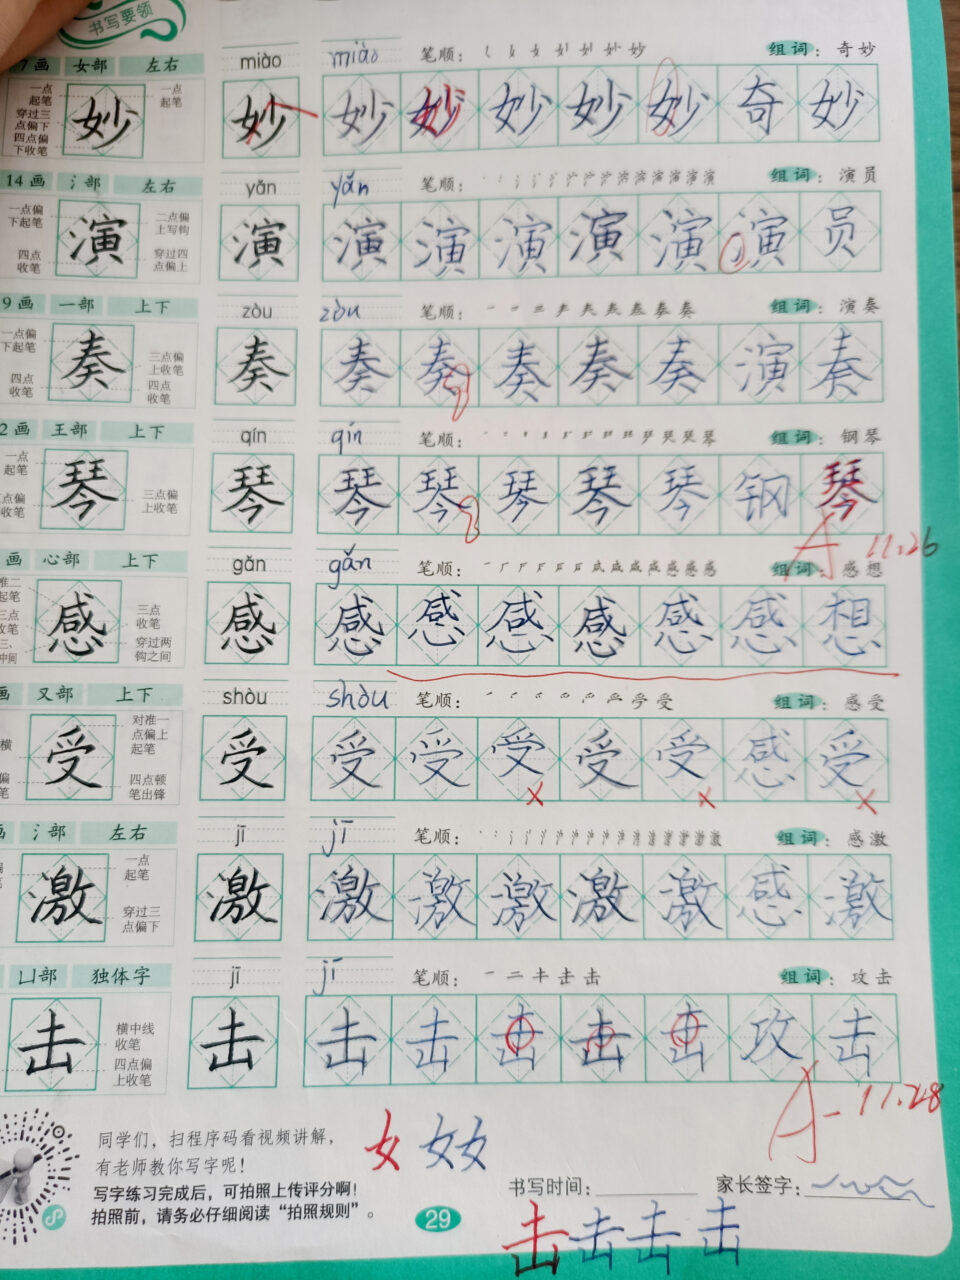 书写要领
7画 女部 左右 miào miào 笔顺： 组词：奇妙
一点起笔 穿过三点偏下 四点偏下收笔 妙 一点起笔 妙 妙 妙 妙 妙 妙 奇 妙
14画 氵部 左右 yǎn yǎn 笔顺： 组词：演员
一点偏下起笔 四点收笔 演 二点偏上写钩 穿过四点偏上 演 演 演 演 演 演 演 员
9画 一部 上下 zòu zòu 笔顺： 组词：演奏
一点偏下起笔 四点收笔 奏 三点偏上收笔 四点收笔 奏 奏 奏 奏 奏 奏 演 奏
2画 王部 上下 qín qín 笔顺： 组词：钢琴
一点起笔 点偏收笔 琴 三点偏上收笔 琴 琴 琴 琴 琴 琴 钢 琴
A 11.26
画 心部 上下 gǎn gǎn 笔顺： 组词：感想
感 三点收笔 穿过两钩之间 感 感 感 感 感 感 感 想
画 又部 上下 shòu shòu 笔顺： 组词：感受
受 对准一点偏上起笔 四点顿笔出锋 受 受 受 受 受 受 感 受
氵部 左右 jī jī 笔顺： 组词：感激
激 一点起笔 穿过三点偏下 激 激 激 激 激 激 感 激
凵部 独体字 jī jī 笔顺：一 二 キ 击 击 组词：攻击
击 横中线收笔 四点偏上收笔 击 击 击 击 击 击 攻 击
A- 11.28
同学们，扫程序码看视频讲解，
有老师教你写字呢！
女 女 女
写字练习完成后，可拍照上传评分啊！
拍照前，请务必仔细阅读“拍照规则”。
29
书写时间： 家长签字：
击 击 击 击